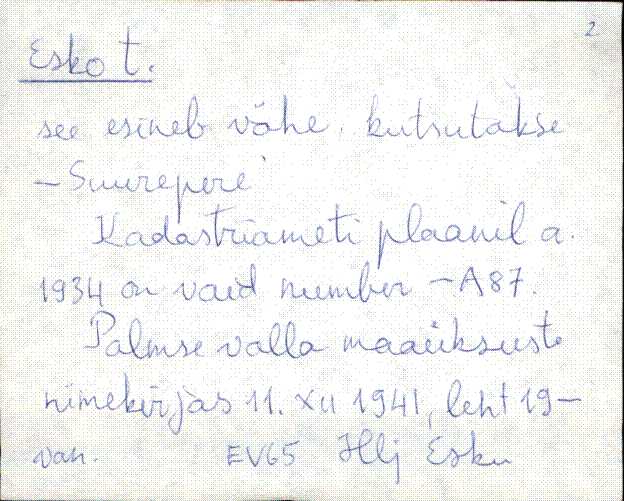 2
Esko t.
see esineb vähe. kutsutakse
– Suurepere
Kadastriameti plaanil a.
1934 on vaid number – A87.
Palmse valla maaüksuste
nimekirjas 11. XII 1941, leht 19 –
van. EV65 Hlj Esku